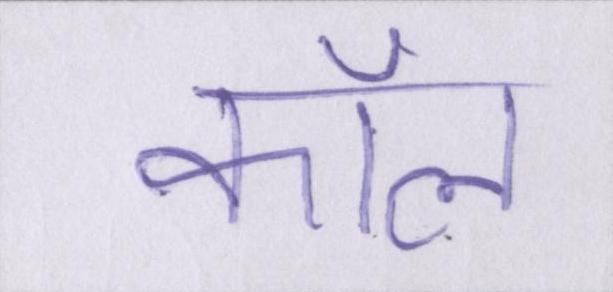 कॉल